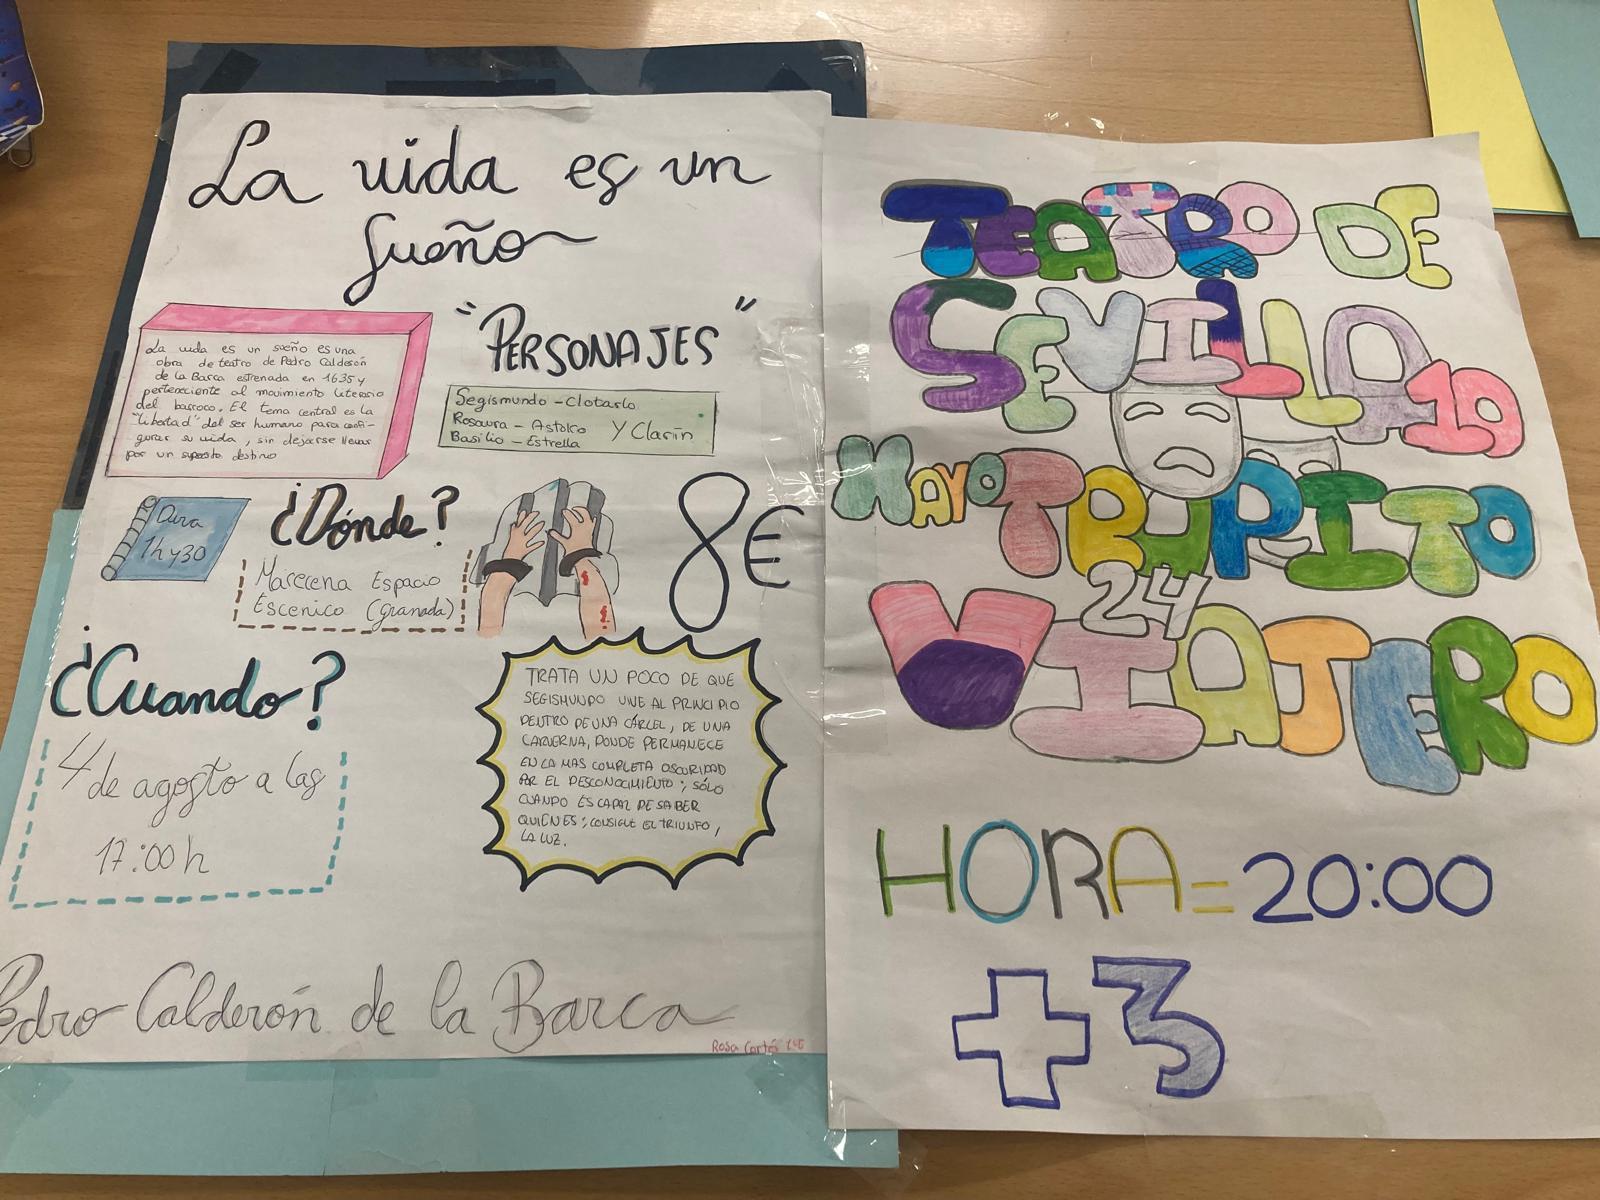 La vida es un
sueño
La vida es un sueño es una
obra de teatro de Pedro Calderón
de la Barca estrenada en 1635 y
perteneciente al movimiento literario
del barroco. El tema central es la
"libertad" del ser humano para confi-
gurar su vida, sin dejarse llevar
por un supuesto destino
"PERSONAJES"
Segismundo - Clotarlo
Rosaura - Astolfo
Basilio - Estrella
Y Clarín
Dura
1h y 30
¿Dónde?
Maracena Espacio
Escenico (granada)
8€
¿Cuando?
4 de agosto a las
17:00 h
TRATA UN POCO DE QUE
SEGISMUNDO VIVE AL PRINCIPIO
DENTRO DE UNA CÁRCEL, DE UNA
CAVERNA, DONDE PERMANECE
EN LA MAS COMPLETA OSCURIDAD
POR EL DESCONOCIMIENTO; SÓLO
CUANDO ES CAPAZ DE SABER
QUIÉN ES; CONSIGUE EL TRIUNFO,
LA LUZ.
Pedro Calderón de la Barca
Rosa Cortés
TEATRO DE
SEVILLA 19
MAYO TRUPITO
24
VIAJERO
HORA = 20:00
+3